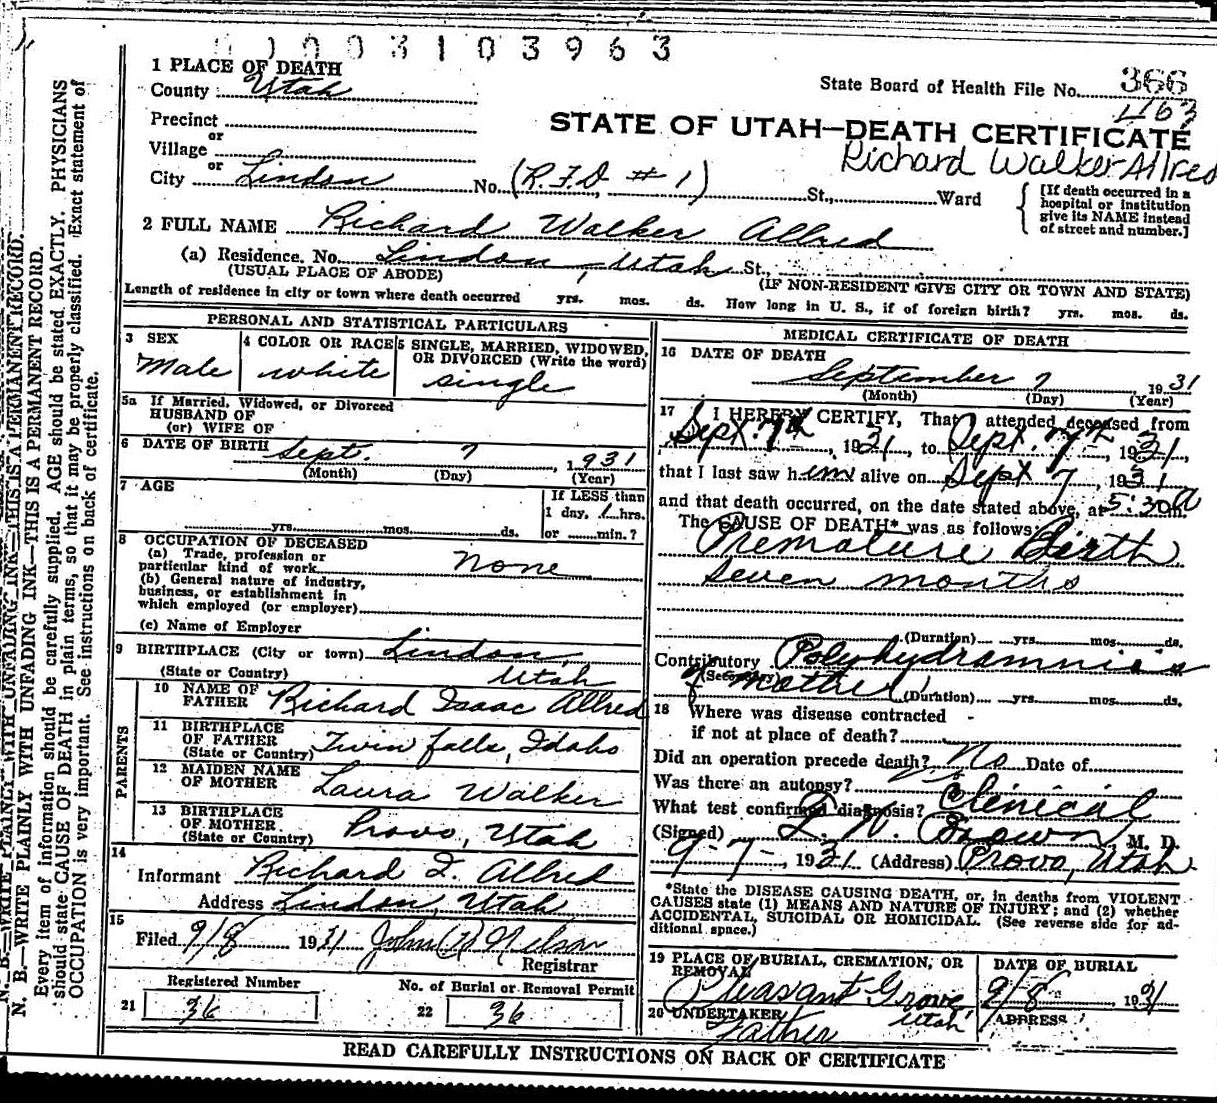 0003103963
1 PLACE OF DEATH
County Utah
State Board of Health File No. 366
463
Precinct
or
Village
STATE OF UTAH—DEATH CERTIFICATE
Richard Walker Allred
or
City Lindon No. (R.F.D. #1) St., Ward
[If death occurred in a hospital or institution give its NAME instead of street and number.]
2 FULL NAME Richard Walker Allred
(a) Residence. No. Lindon, Utah St.,
(USUAL PLACE OF ABODE) (IF NON-RESIDENT GIVE CITY OR TOWN AND STATE)
Length of residence in city or town where death occurred yrs. mos. ds. How long in U. S., if of foreign birth? yrs. mos. ds.
PERSONAL AND STATISTICAL PARTICULARS
3 SEX
Male
4 COLOR OR RACE
white
5 SINGLE, MARRIED, WIDOWED, OR DIVORCED (Write the word)
single
5a If Married, Widowed, or Divorced
HUSBAND OF
(or) WIFE OF
6 DATE OF BIRTH Sept. 7, 1931
(Month) (Day) (Year)
7 AGE
yrs. mos. ds.
If LESS than
1 day, 1 hrs.
or min.?
8 OCCUPATION OF DECEASED
(a) Trade, profession or
particular kind of work none
(b) General nature of industry,
business, or establishment in
which employed (or employer)
(c) Name of Employer
9 BIRTHPLACE (City or town) Lindon,
(State or Country) Utah
PARENTS
10 NAME OF
FATHER Richard Isaac Allred
11 BIRTHPLACE
OF FATHER
(State or Country) Twin falls, Idaho
12 MAIDEN NAME
OF MOTHER Laura Walker
13 BIRTHPLACE
OF MOTHER
(State or Country) Provo, Utah
14
Informant Richard I. Allred
Address Lindon, Utah
15
Filed 9/8 1931 John Nelson
Registrar
Registered Number
21 36
No. of Burial or Removal Permit
22 36
MEDICAL CERTIFICATE OF DEATH
16 DATE OF DEATH
September 7 1931
(Month) (Day) (Year)
17 I HEREBY CERTIFY, That I attended deceased from
Sept 7th, 1931, to Sept. 7th, 1931,
that I last saw him alive on Sept 7, 1931
and that death occurred, on the date stated above, at 5:30 a m.
The CAUSE OF DEATH* was as follows:
Premature Birth
seven months
(Duration) yrs. mos. ds.
Contributory Polyhydramnios
(Secondary) of mother (Duration) yrs. mos. ds.
18 Where was disease contracted
if not at place of death?
Did an operation precede death? No Date of
Was there an autopsy? no
What test confirmed diagnosis? Clinical
(Signed) Brown, M. D.
9-7-, 1931 (Address) Provo, Utah
*State the DISEASE CAUSING DEATH, or, in deaths from VIOLENT
CAUSES state (1) MEANS AND NATURE OF INJURY; and (2) whether
ACCIDENTAL, SUICIDAL OR HOMICIDAL. (See reverse side for ad-
ditional space.)
19 PLACE OF BURIAL, CREMATION, OR
REMOVAL
Pleasant Grove, Utah
DATE OF BURIAL
9/8, 1931
20 UNDERTAKER
Father
ADDRESS
READ CAREFULLY INSTRUCTIONS ON BACK OF CERTIFICATE
N. B.—WRITE PLAINLY WITH UNFADING INK—THIS IS A PERMANENT RECORD.
N. B.—WRITE PLAINLY WITH UNFADING INK—THIS IS A PERMANENT RECORD.
Every item of information should be carefully supplied. AGE should be stated EXACTLY. PHYSICIANS
should state CAUSE OF DEATH in plain terms, so that it may be properly classified. Exact statement of
OCCUPATION is very important. See instructions on back of certificate.